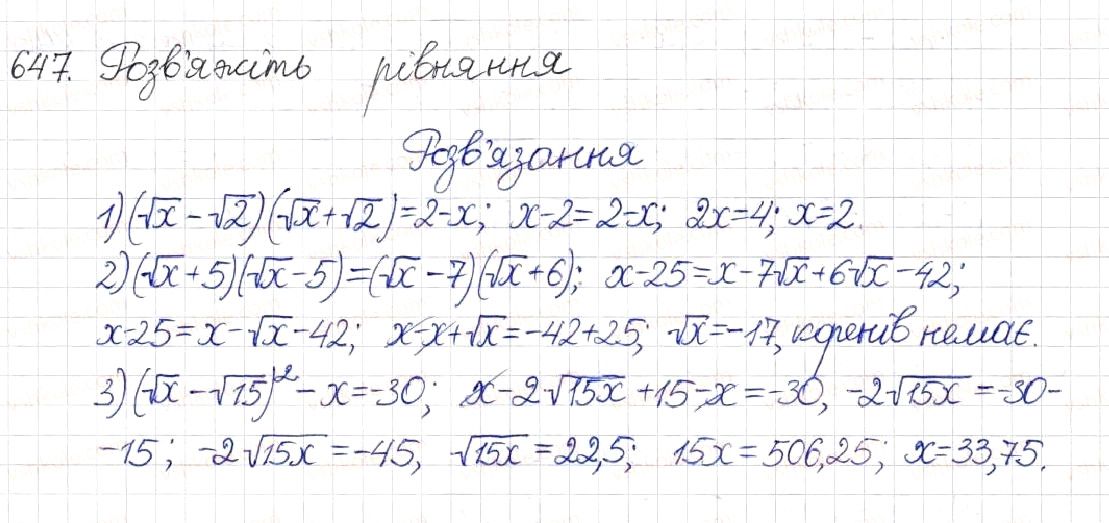 647. Розв'яжіть рівняння
Розв'язання
1) (√x - √2)(√x + √2) = 2-x; x-2 = 2-x; 2x=4; x=2.
2) (√x + 5)(√x - 5) = (√x - 7)(√x + 6); x-25 = x-7√x+6√x-42;
x-25 = x-√x-42; x-x+√x = -42+25; √x = -17, коренів немає.
3) (√x - √15)² - x = -30; x - 2√15x + 15 - x = -30, -2√15x = -30-
-15; -2√15x = -45, √15x = 22,5; 15x = 506,25; x = 33,75.